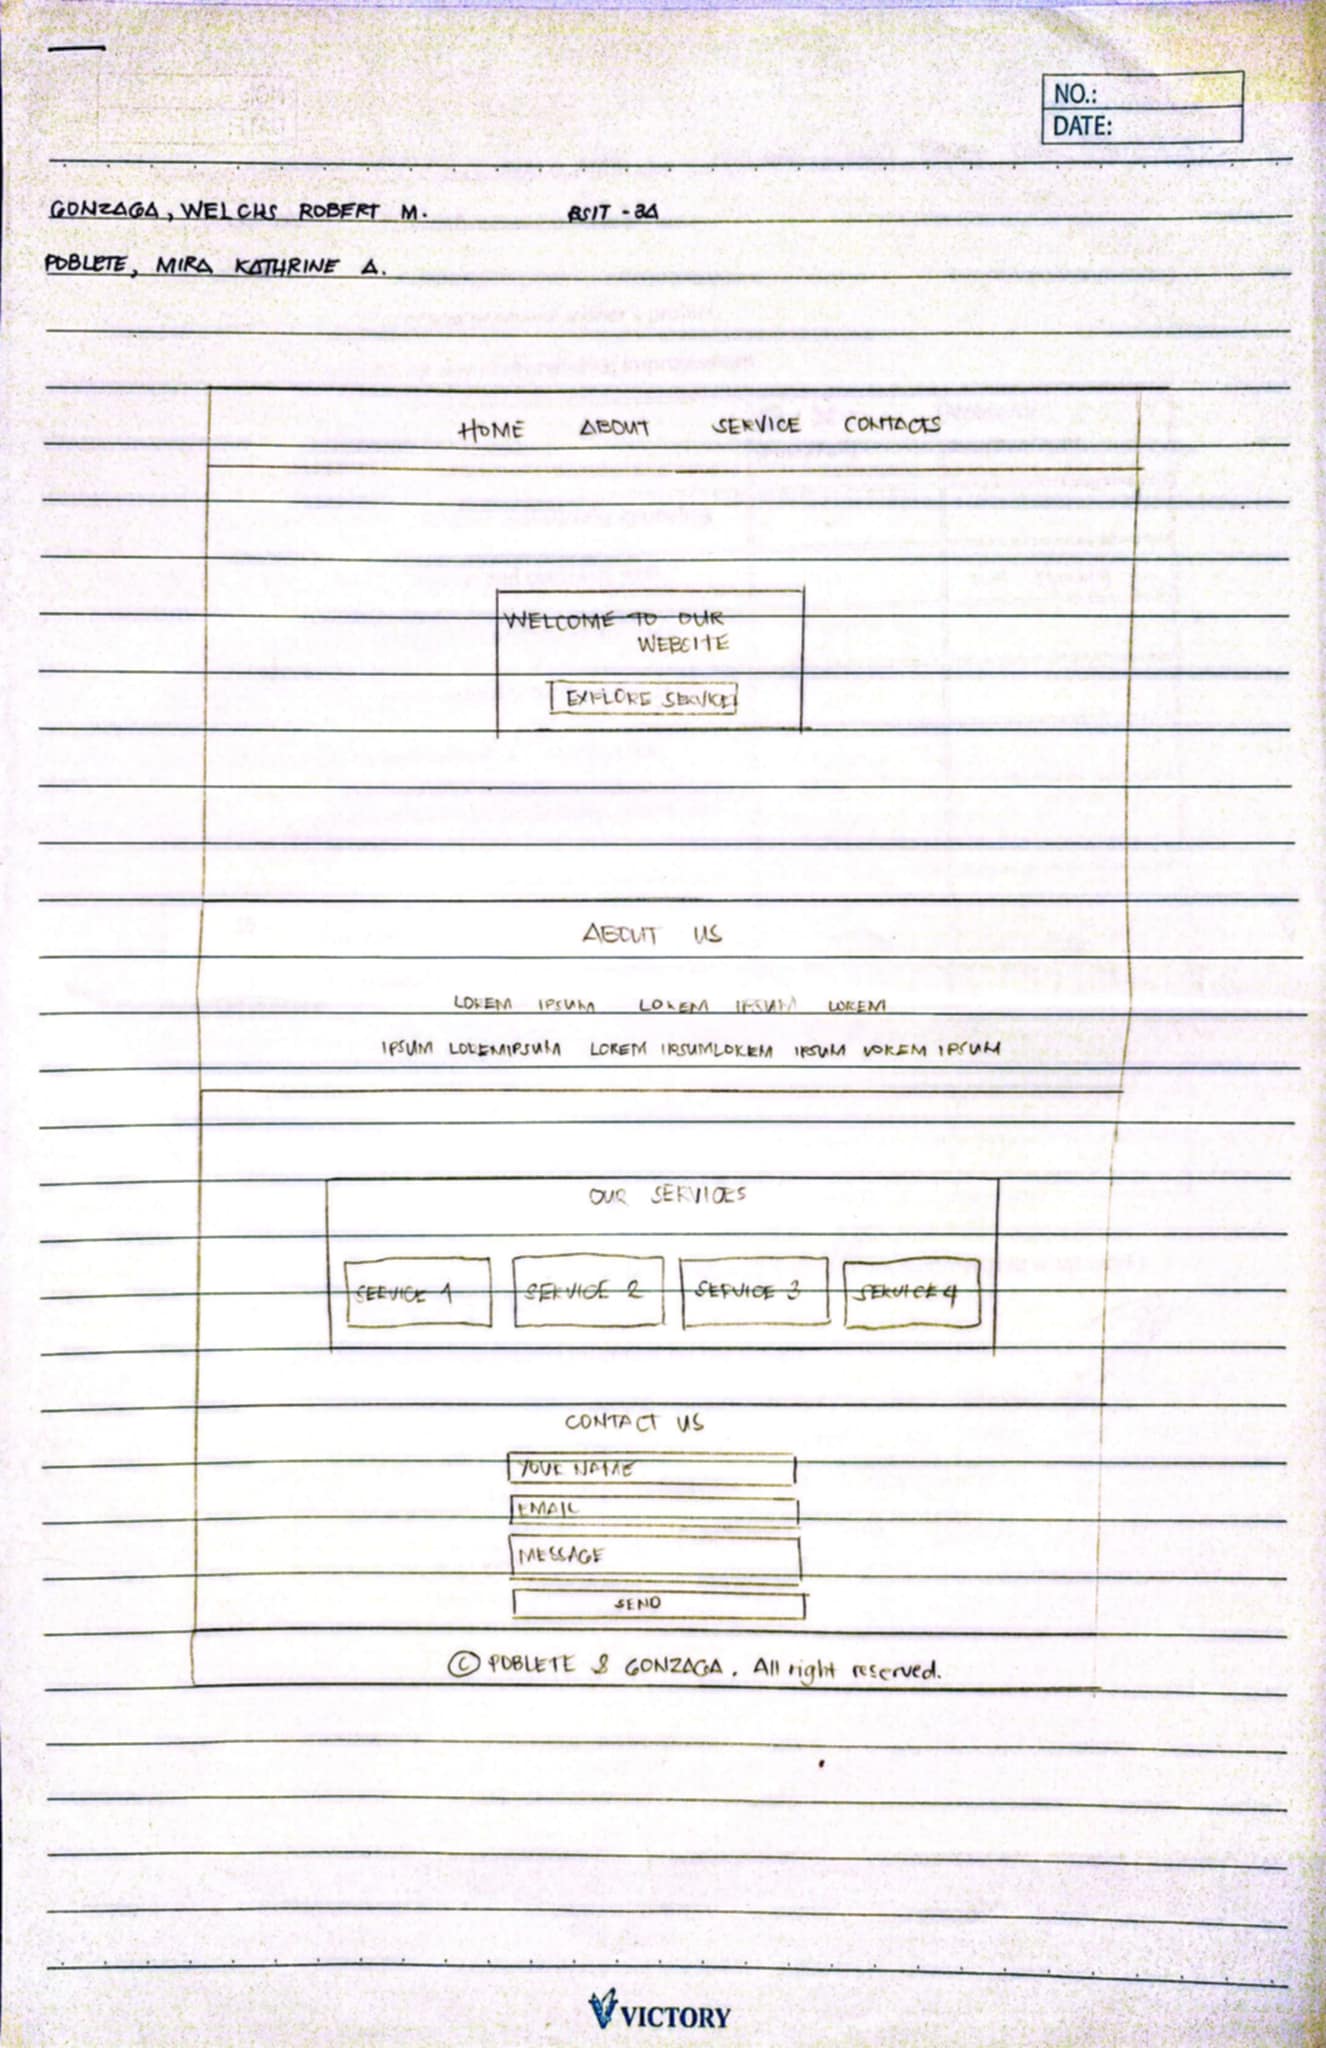 NO.:
DATE:
GONZAGA, WELCHS ROBERT M. BSIT - 3A
POBLETE, MIRA KATHRINE A.
HOME ABOUT SERVICE CONTACTS
WELCOME TO OUR
WEBSITE
EXPLORE SERVICE
ABOUT US
LOREM IPSUM LOREM IPSUM LOREM
IPSUM LOREMIPSUM LOREM IPSUMLOREM IPSUM LOREM IPSUM
OUR SERVICES
SERVICE 1 SERVICE 2 SERVICE 3 SERVICE 4
CONTACT US
YOUR NAME
EMAIL
MESSAGE
SEND
© POBLETE & GONZAGA. All right reserved.
VICTORY